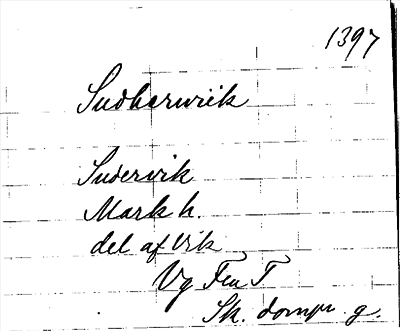 1397
Sudherwik
Sudervik
Mark h.
del af Vik
Vg Fru T
Sk. dompr g.